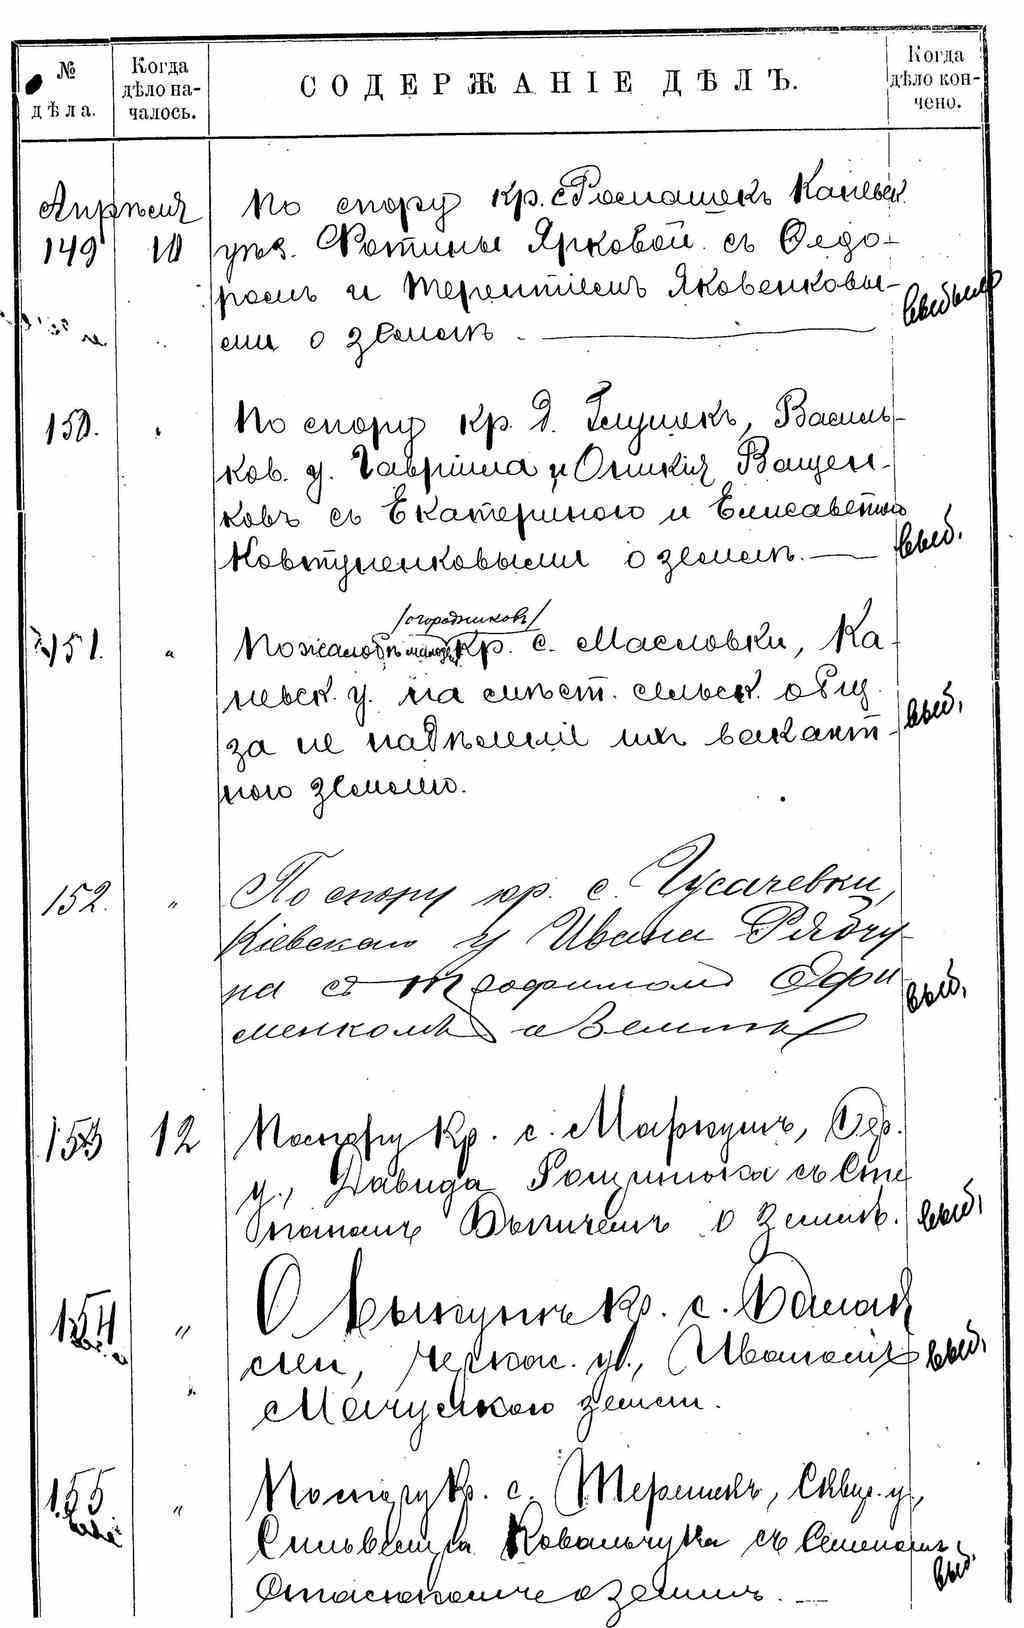 № дѣла.
Когда дѣло на-
чалось.
СОДЕРЖАНІЕ ДѢЛЪ.
Когда дѣло кон-
чено.
Апрѣля
149 10 По спору кр. с. Ромашекъ Каневск.
уѣз. Фотины Ярковой съ Ѳедо-
ромъ и Терентіемъ Яковенковы-
ми о землѣ.
150. По спору кр. д. Глушекъ, Василь-
ков. у. Гавріила и Оникія Ващен-
ковъ съ Екатериною и Елисаветою
Ковтуненковыми о землѣ. выб.
/огородниковъ/
151. " По жалобѣ кр. с. Масловки, Ка-
невск. у. на мѣст. сельск. общ.
за не надѣленіе ихъ вакант-
ною землею. выб.
152. " По спору кр. с. Гусачевки,
Кіевскаго у Ивана Рябчу-
на съ Трофимомъ Ефи-
менкомъ о землѣ выб.
153 12 По спору кр. с. Маркушъ, Бер.
у., Давида Рощинюка съ Сте
паномъ о землѣ. выб.
154 " О выкупѣ кр. с. Балак
леи, Черкас. у., Иваномъ выб.
землі.
155 " По спору кр. с. Терешекъ, Сквир. у.,
Сильвестра Ковальчука съ Семеномъ
Стасюкомъ о землѣ. выб.